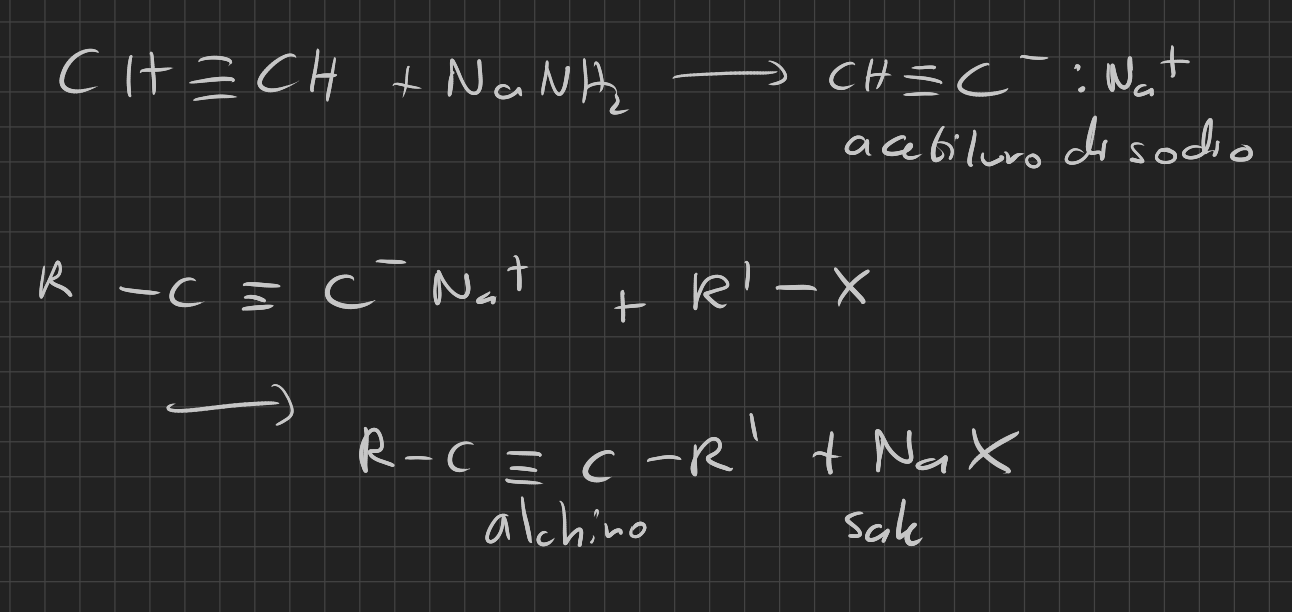 CH≡CH + NaNH₂ ⟶ CH≡C⁻ :Na⁺
acetiluro di sodio
R-C≡C⁻Na⁺ + R'-X
⟶
R-C≡C-R' + NaX
alchino sale